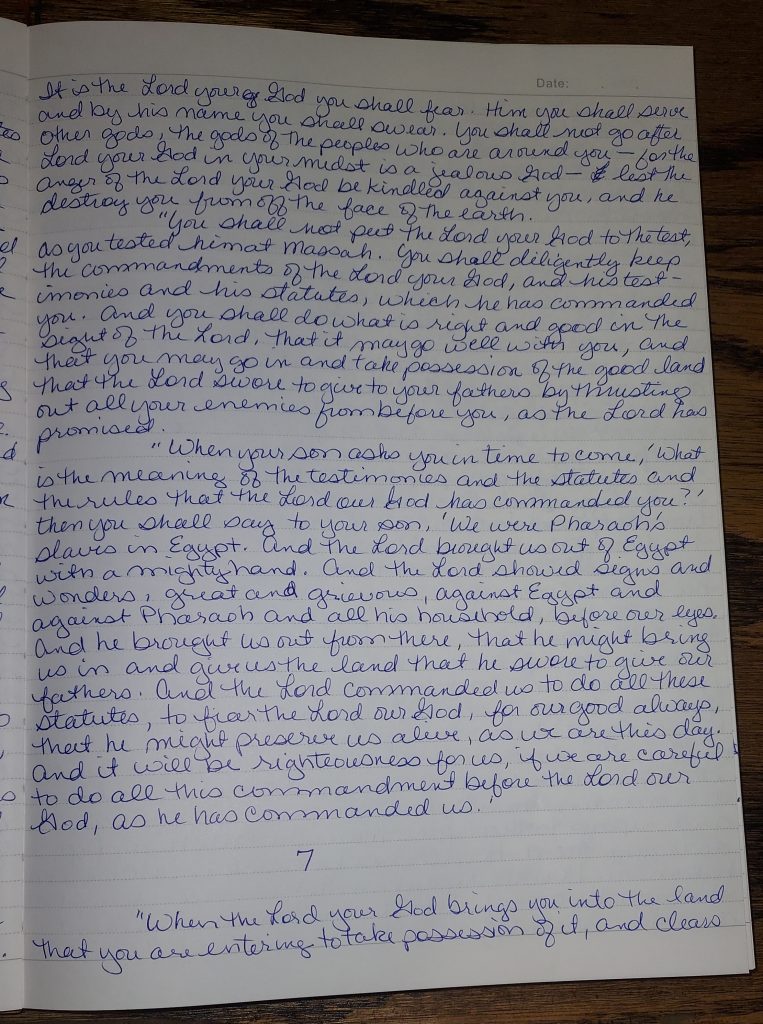 Date:
It is the Lord your God you shall fear. Him you shall serve
and by his name you shall swear. You shall not go after
other gods, the gods of the peoples who are around you – for the
Lord your God in your midst is a jealous God – lest the
anger of the Lord your God be kindled against you, and he
destroy you from off the face of the earth.
"You shall not put the Lord your God to the test,
as you tested him at Massah. You shall diligently keep
the commandments of the Lord your God, and his test-
imonies and his statutes, which he has commanded
you. And you shall do what is right and good in the
sight of the Lord, that it may go well with you, and
that you may go in and take possession of the good land
that the Lord swore to give to your fathers by thrusting
out all your enemies from before you, as the Lord has
promised.
"When your son asks you in time to come, 'What
is the meaning of the testimonies and the statutes and
the rules that the Lord our God has commanded you?'
then you shall say to your son, 'We were Pharaoh's
slaves in Egypt. And the Lord brought us out of Egypt
with a mighty hand. And the Lord showed signs and
wonders, great and grievous, against Egypt and
against Pharaoh and all his household, before our eyes.
And he brought us out from there, that he might bring
us in and give us the land that he swore to give our
fathers. And the Lord commanded us to do all these
statutes, to fear the Lord our God, for our good always,
that he might preserve us alive, as we are this day.
and it will be righteousness for us, if we are careful
to do all this commandment before the Lord our
God, as he has commanded us.'
7
"When the Lord your God brings you into the land
that you are entering to take possession of it, and clears